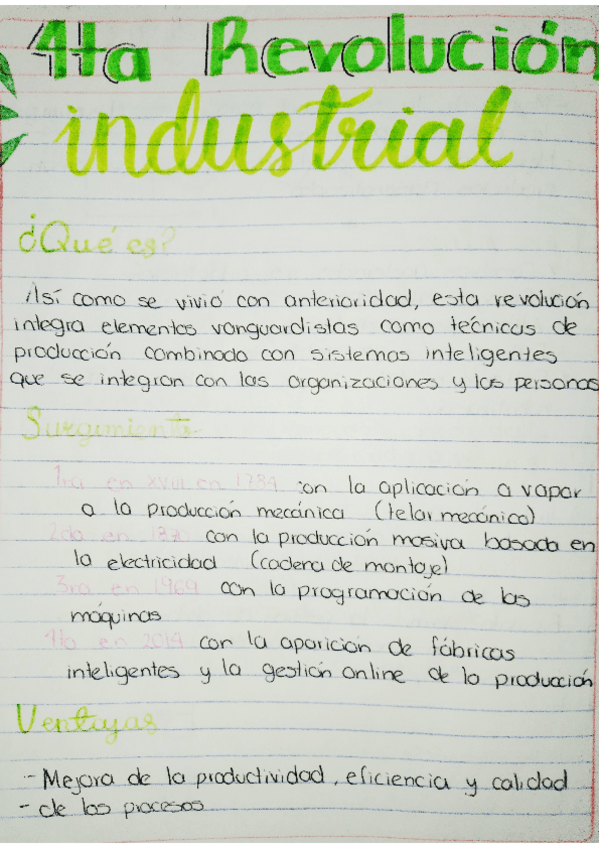 4ta Revolución
industrial
¿Qué es?
Así como se vivio con anterioridad, esta revolución
integra elementos vanguardistas como técnicas de
producción combinado con sistemas inteligentes
que se integran con las organizaciones y las personas
Surgimiento
1ra en XVIII en 1784 con la aplicación a vapor
a la producción mecánica (telar mecánico)
2da en 1870 con la producción masiva basada en
la electricidad (cadena de montaje)
3ra en 1969 con la programación de las
máquinas
4ta en 2014 con la aparición de fábricas
inteligentes y la gestión online de la producción
Ventajas
- Mejora de la productividad, eficiencia y calidad
- de los procesos